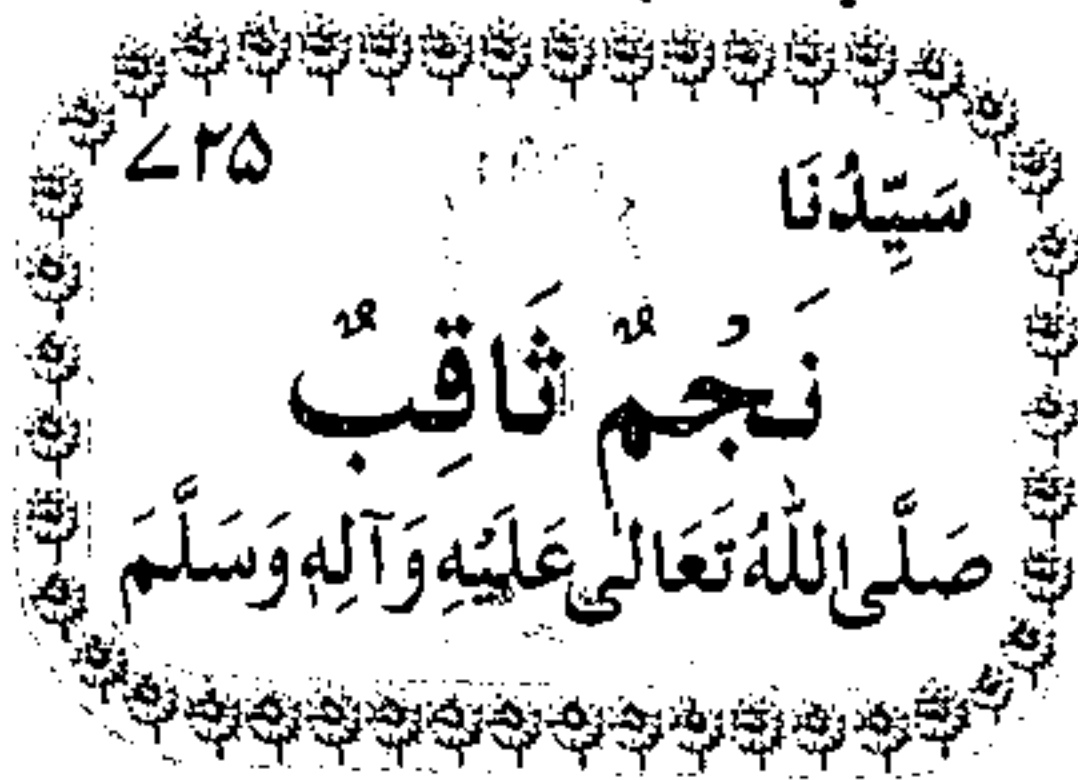 سَيِّدُنَا ۷۲۵
نَجْمٌ ثَاقِبٌ
صَلَّى اللّٰهُ تَعَالٰى عَلَيْهِ وَآلِهٖ وَسَلَّمَ